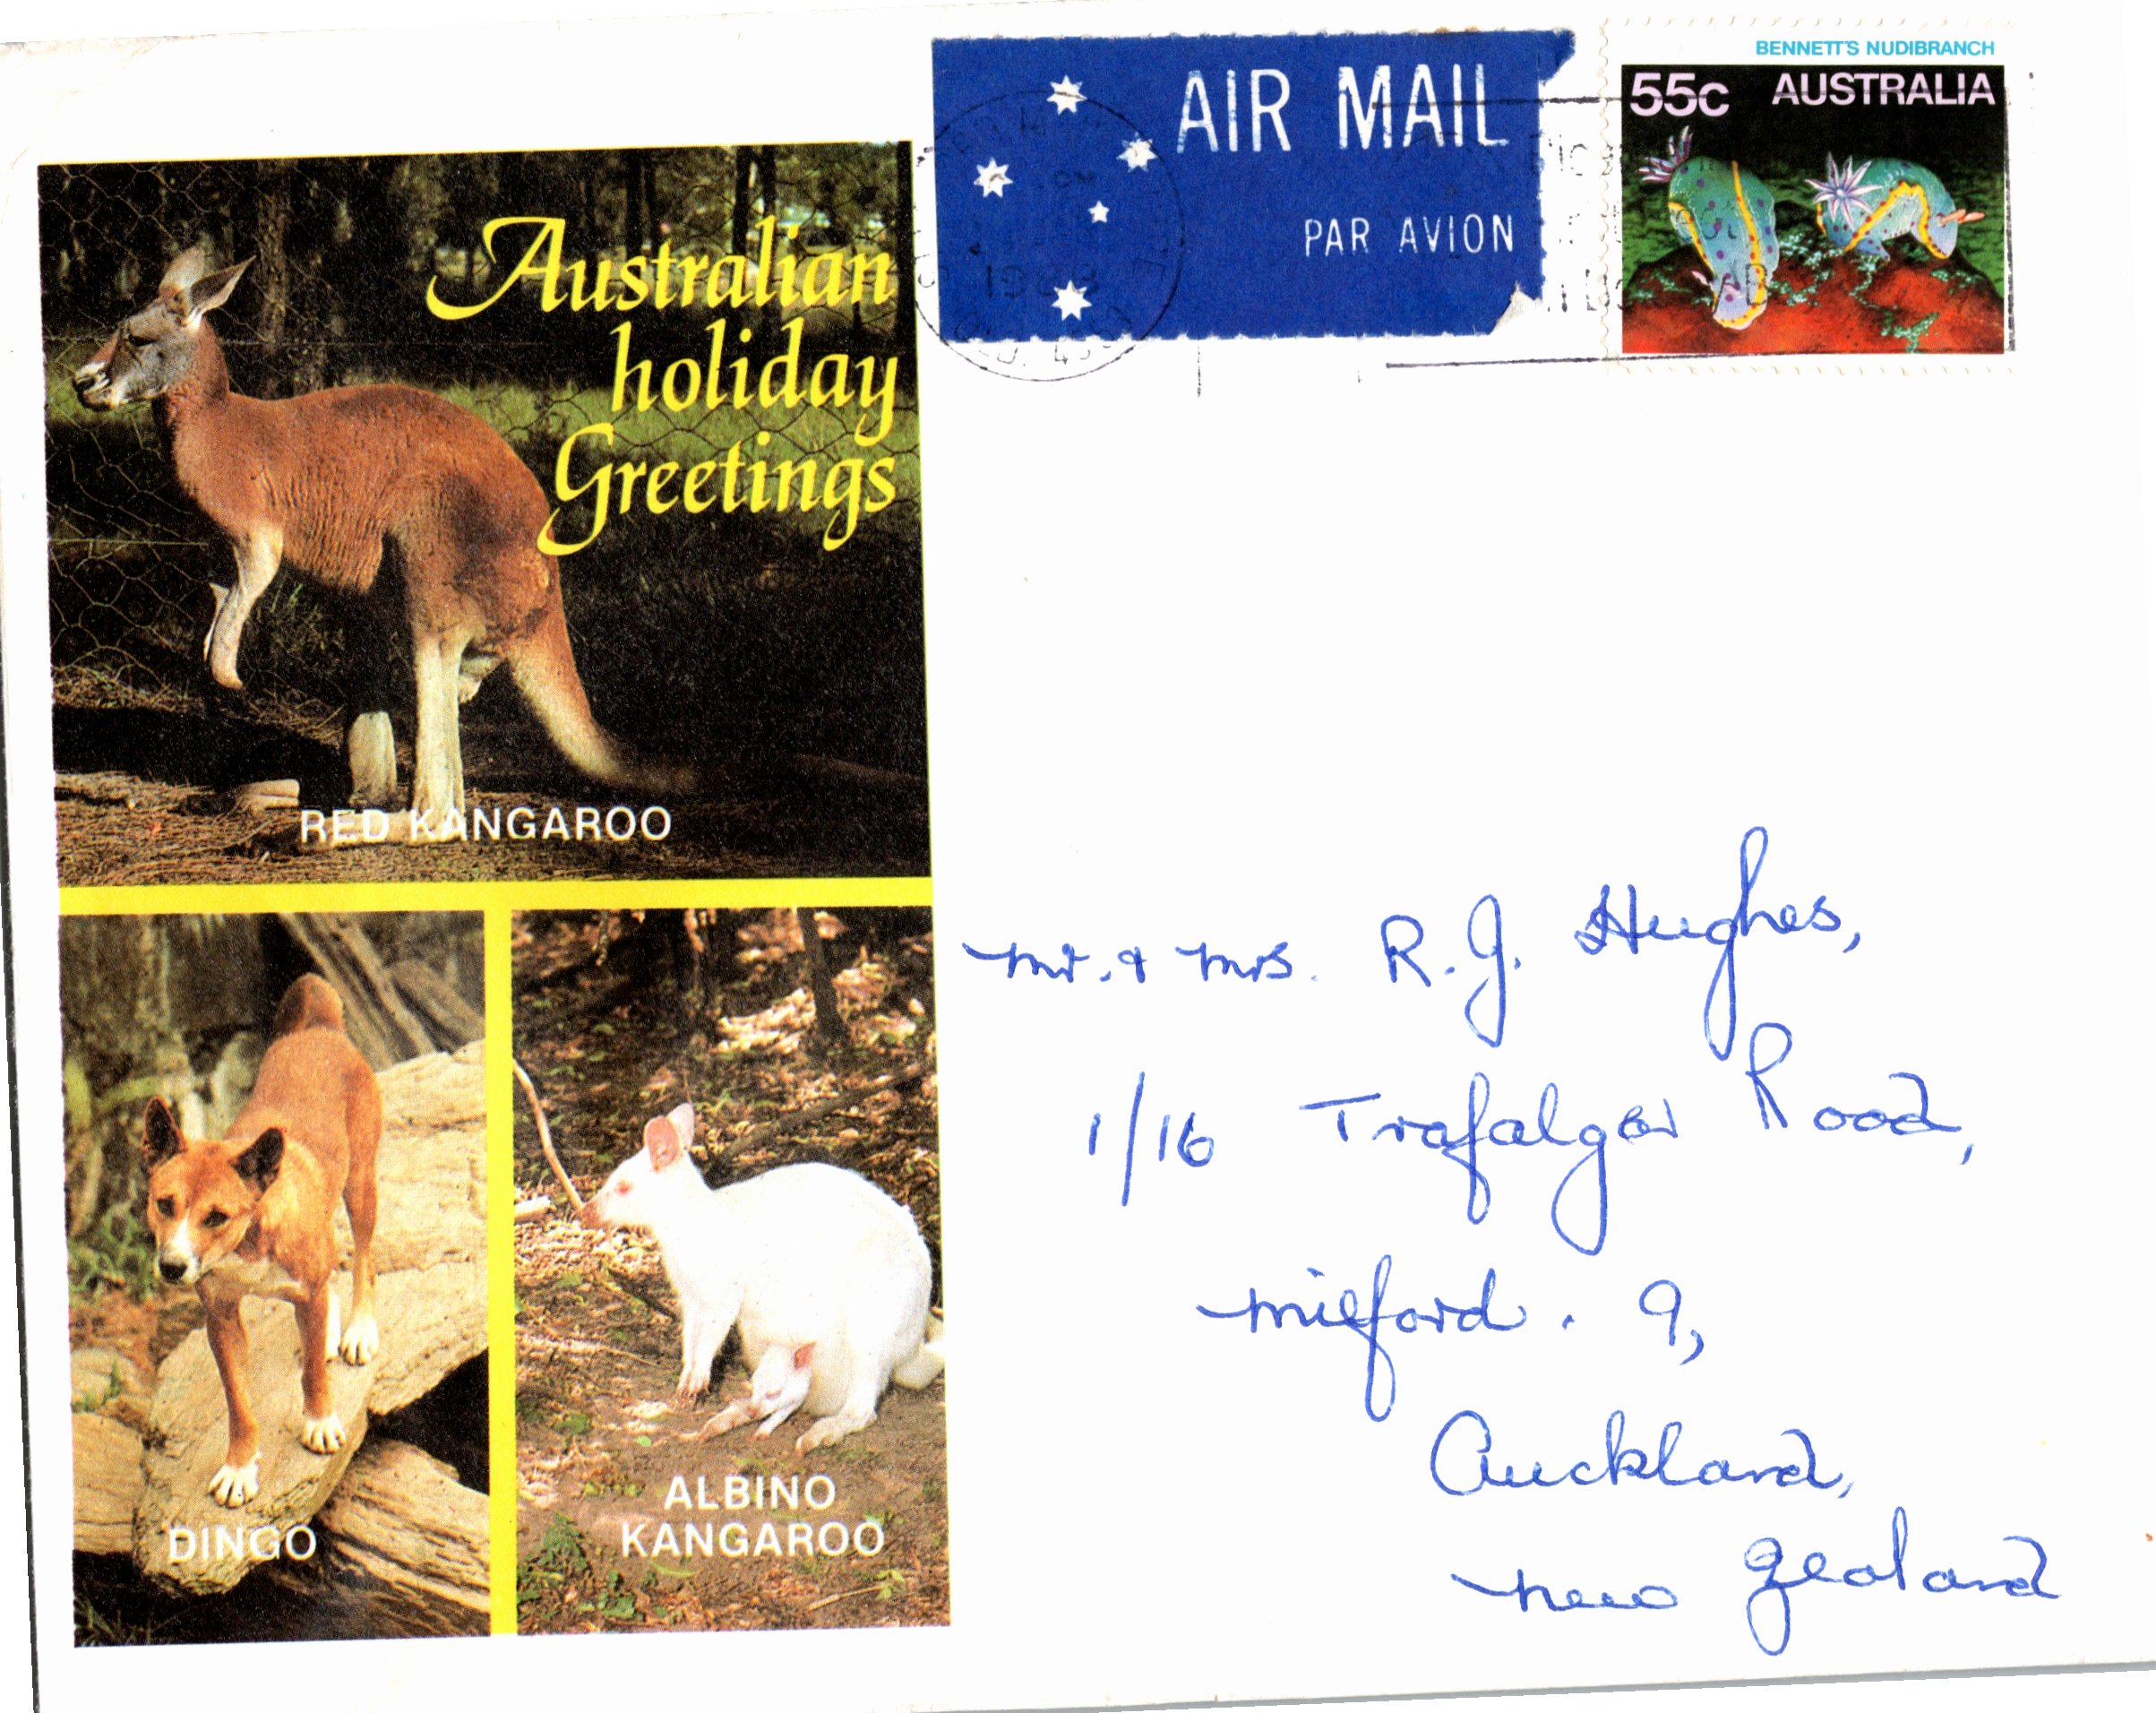 BENNETT'S NUDIBRANCH
55c AUSTRALIA
AIR MAIL
PAR AVION
1988
Australian
holiday
Greetings
RED KANGAROO
DINGO
ALBINO
KANGAROO
Mr. & Mrs. R. J. Hughes,
1/16 Trafalgar Road,
Milford. 9,
Auckland,
New Zealand